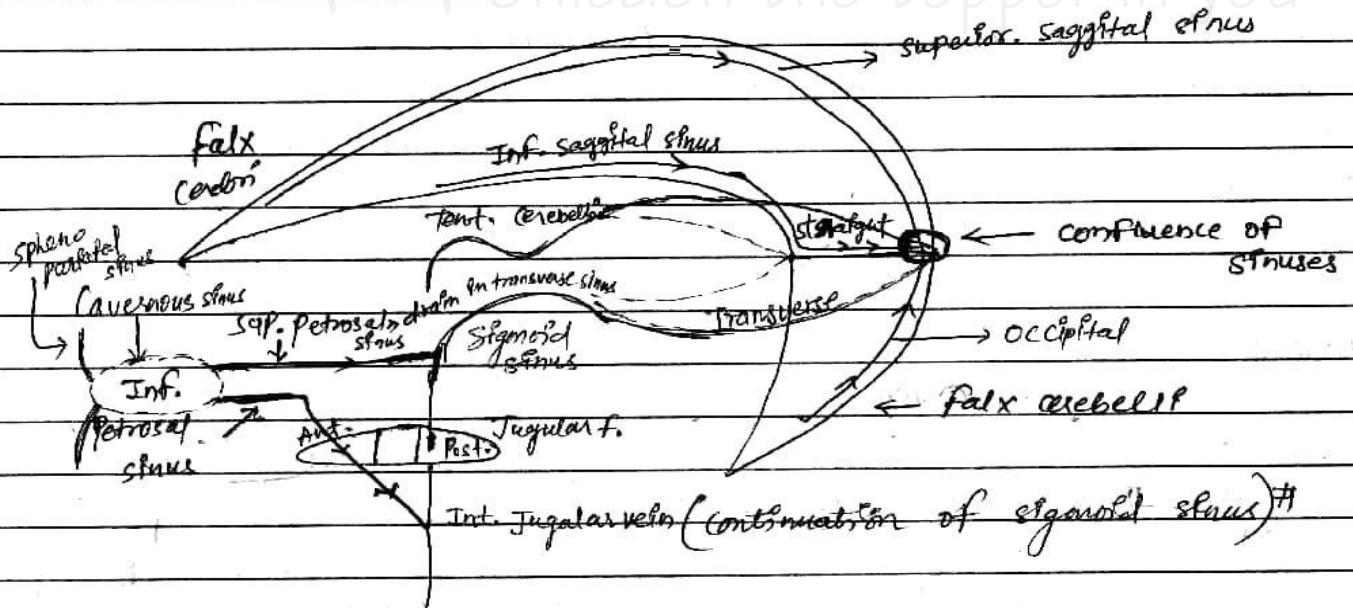 superior. saggital sinus
Falx
Cerebri
Inf. saggital sinus
Tent. cerebelli
straight
confluence of
sinuses
spheno
parietal
sinus
Cavernous sinus
sup. Petrosal → drain in transverse sinus
sinus
Transverse
Sigmoid
sinus
Occipital
Inf.
Petrosal
sinus
Falx cerebelli
Ant.
Post.
Jugular f.
Int. Jugalar vein (continuation of sigmoid sinus)#